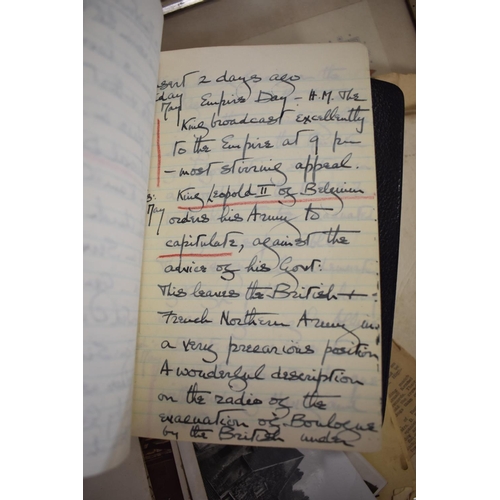 sent 2 days ago
day
May Empire Day - H.M. The
King broadcast excellently
to the Empire at 9 pm
- most stirring appeal.
King Leopold II of Belgium
May orders his Army to
capitulate, against the
advice of his Govt:
This leaves the British +
French Northern Army in
a very precarious position
A wonderful description
on the radio of the
evacuation of Boulogne
by the British under